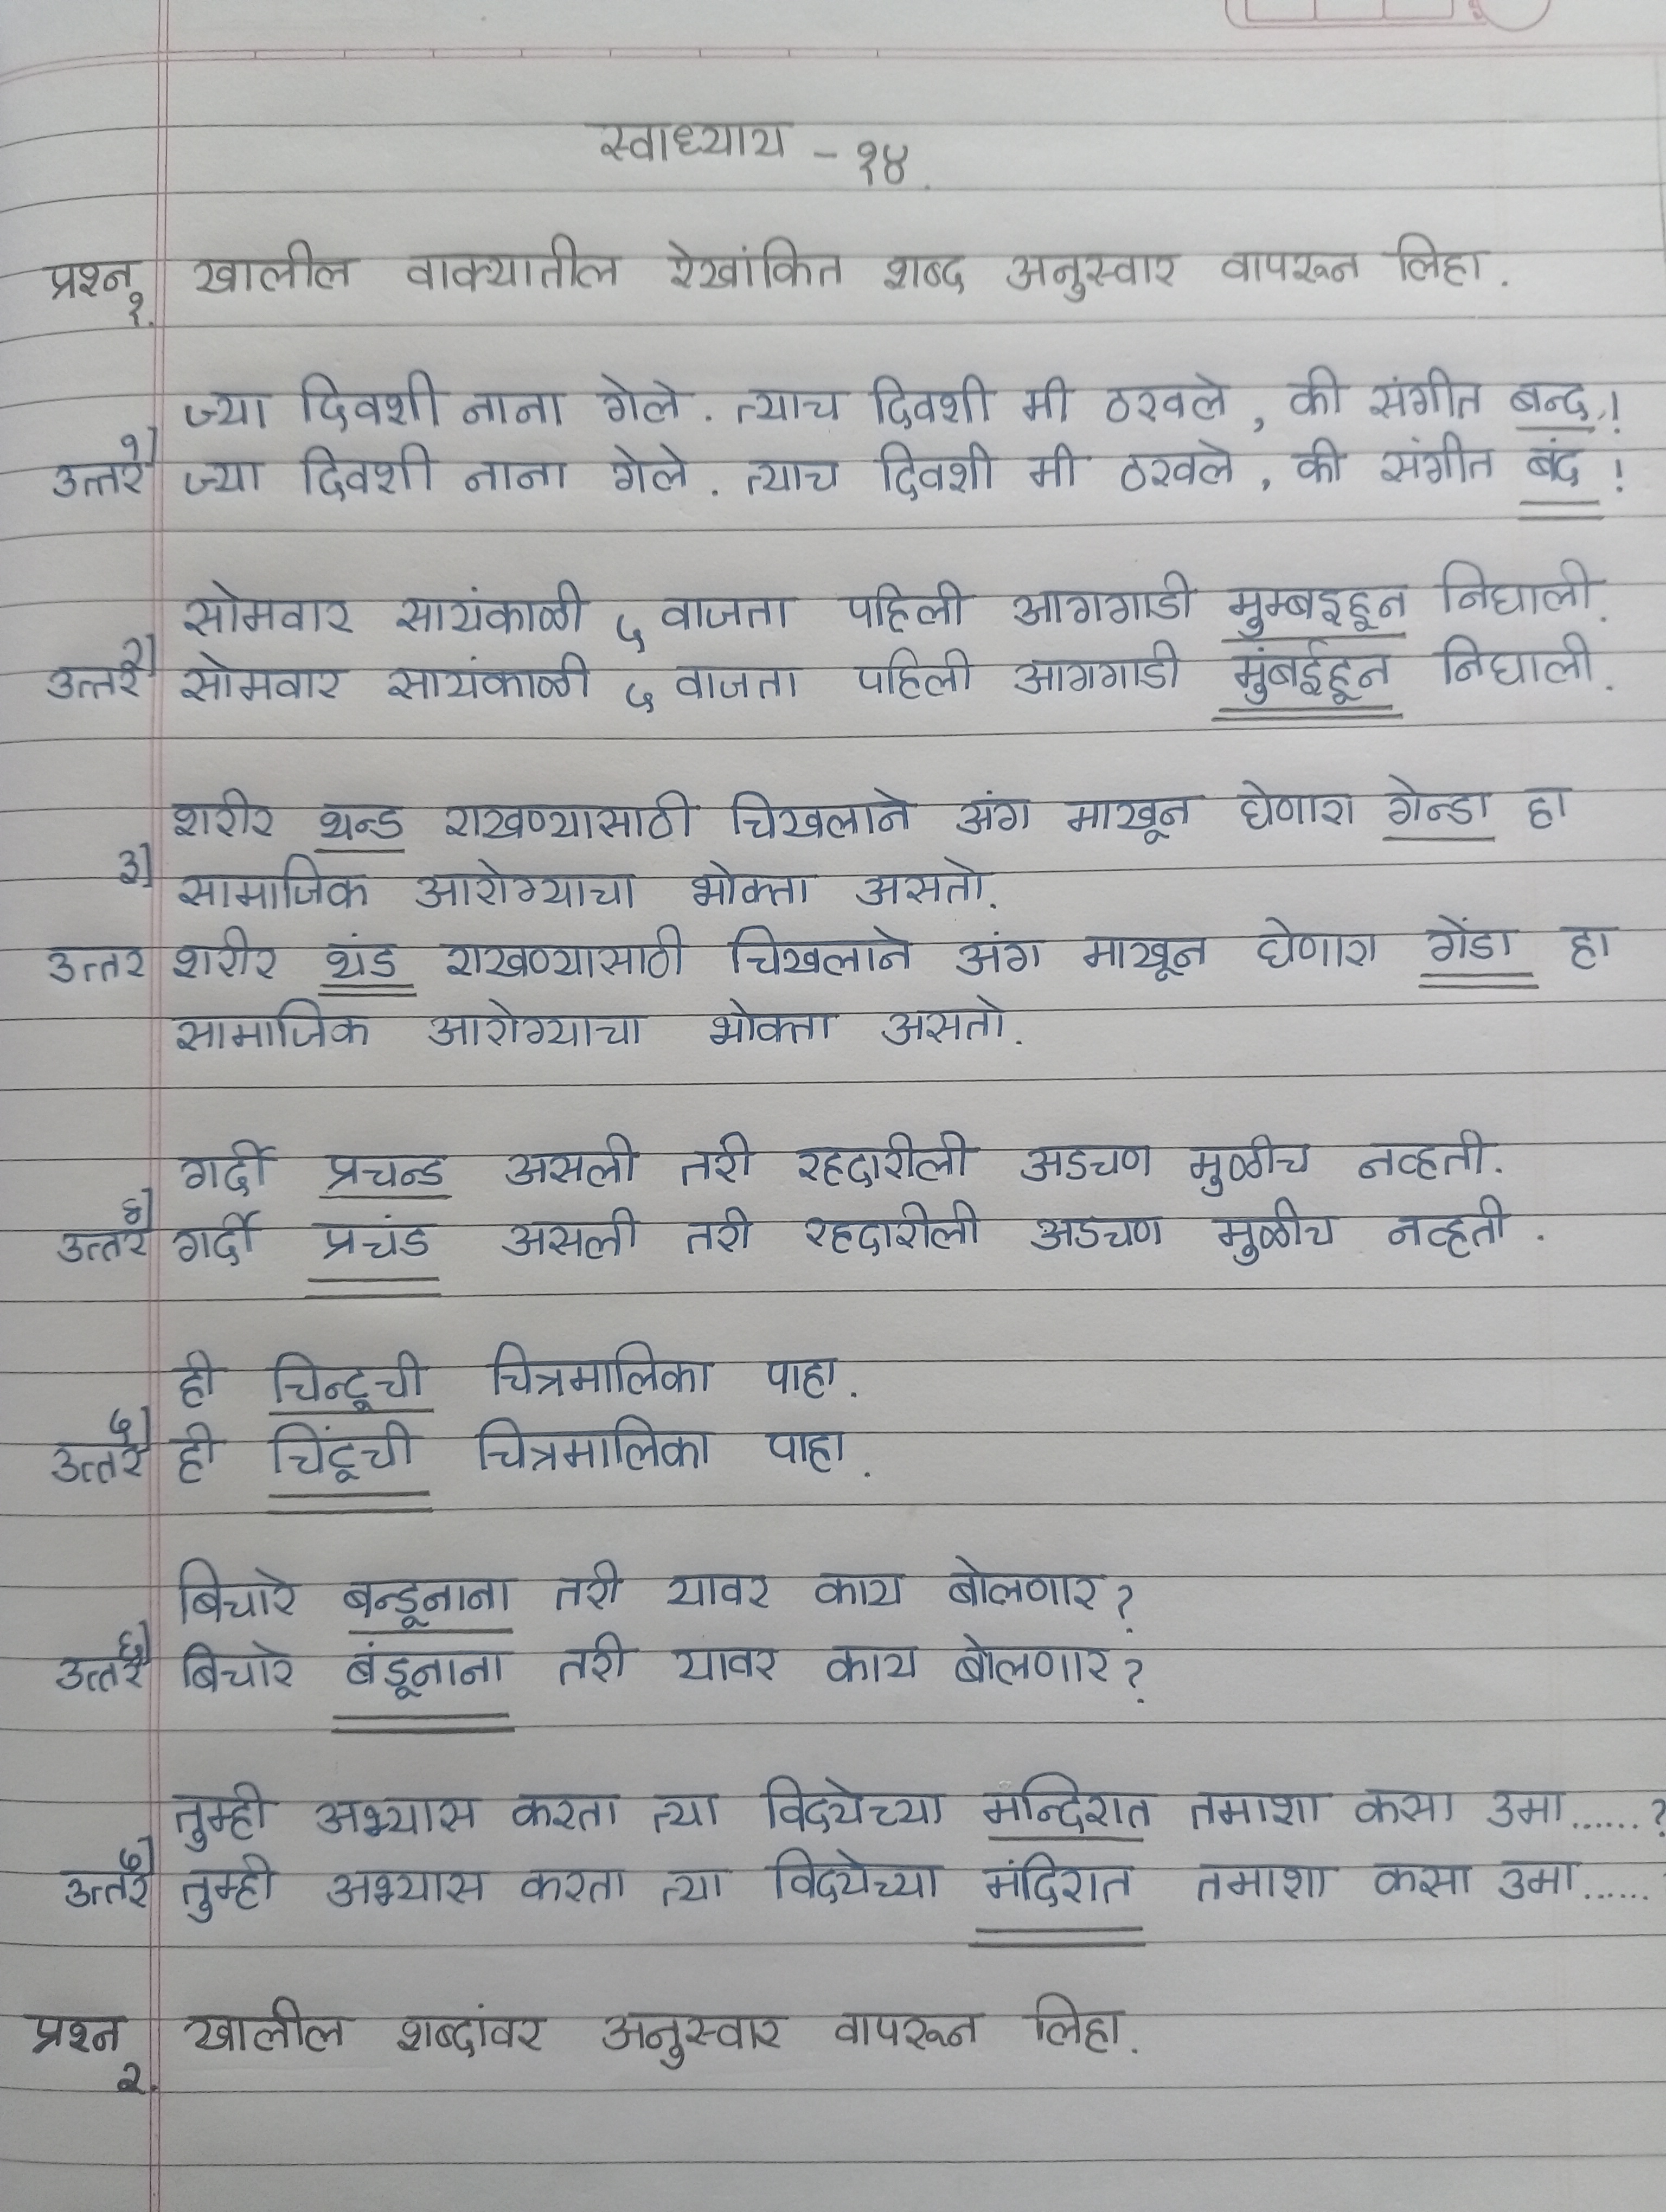 स्वाध्याय - १४.
प्रश्न १. खालील वाक्यातील रेखांकित शब्द अनुस्वार वापरून लिहा.
१] ज्या दिवशी नाना गेले. त्याच दिवशी मी ठरवले, की संगीत बन्द!
उत्तर ज्या दिवशी नाना गेले. त्याच दिवशी मी ठरवले, की संगीत बंद!
२] सोमवार सायंकाळी ५ वाजता पहिली आगगाडी मुम्बइहून निघाली.
उत्तर सोमवार सायंकाळी ५ वाजता पहिली आगगाडी मुंबईहून निघाली.
३] शरीर थन्ड राखण्यासाठी चिखलाने अंग माखून घेणारा गेन्डा हा
सामाजिक आरोग्याचा भोक्ता असतो.
उत्तर शरीर थंड राखण्यासाठी चिखलाने अंग माखून घेणारा गेंडा हा
सामाजिक आरोग्याचा भोक्ता असतो.
४] गर्दी प्रचन्ड असली तरी रहदारीली अडचण मुळीच नव्हती.
उत्तर गर्दी प्रचंड असली तरी रहदारीली अडचण मुळीच नव्हती.
५] ही चिन्टूची चित्रमालिका पाहा.
उत्तर ही चिंटूची चित्रमालिका पाहा.
६] बिचारे बन्डूनाना तरी यावर काय बोलणार?
उत्तर बिचारे बंडूनाना तरी यावर काय बोलणार?
७] तुम्ही अभ्यास करता त्या विद्येच्या मन्दिरात तमाशा कसा उमा......?
उत्तर तुम्ही अभ्यास करता त्या विद्येच्या मंदिरात तमाशा कसा उमा......
प्रश्न २. खालील शब्दांवर अनुस्वार वापरून लिहा.